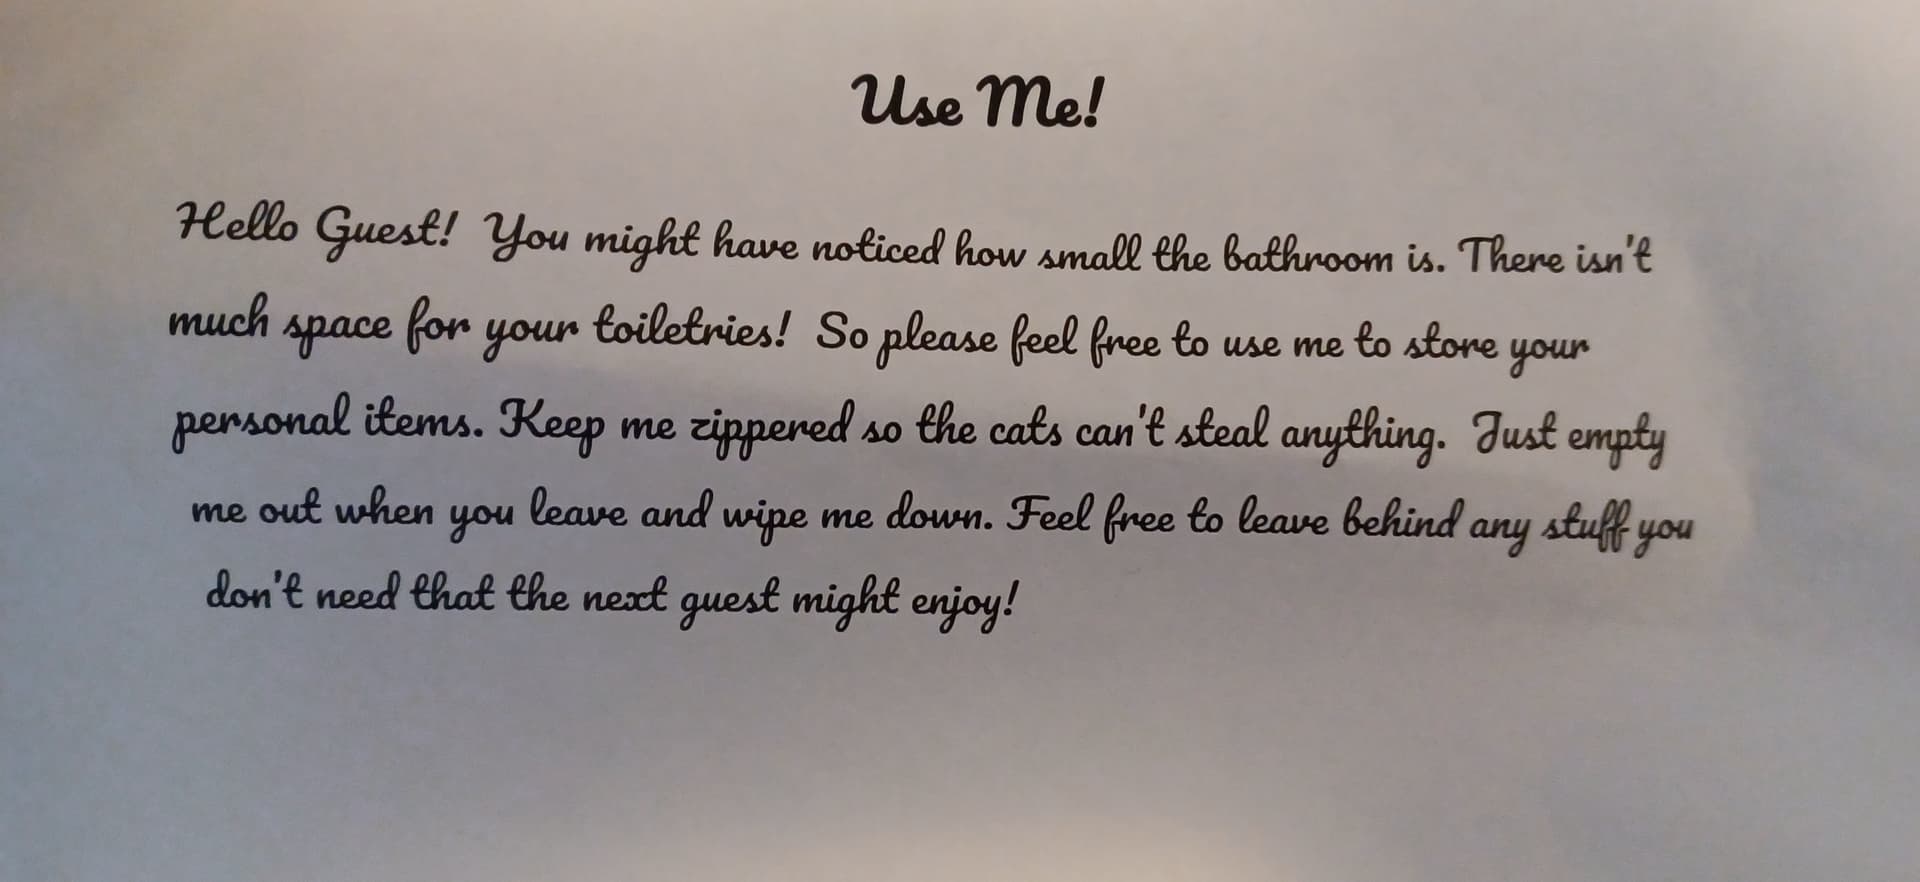 Use Me!
Hello Guest! You might have noticed how small the bathroom is. There isn't
much space for your toiletries! So please feel free to use me to store your
personal items. Keep me zippered so the cats can't steal anything. Just empty
me out when you leave and wipe me down. Feel free to leave behind any stuff you
don't need that the next guest might enjoy!